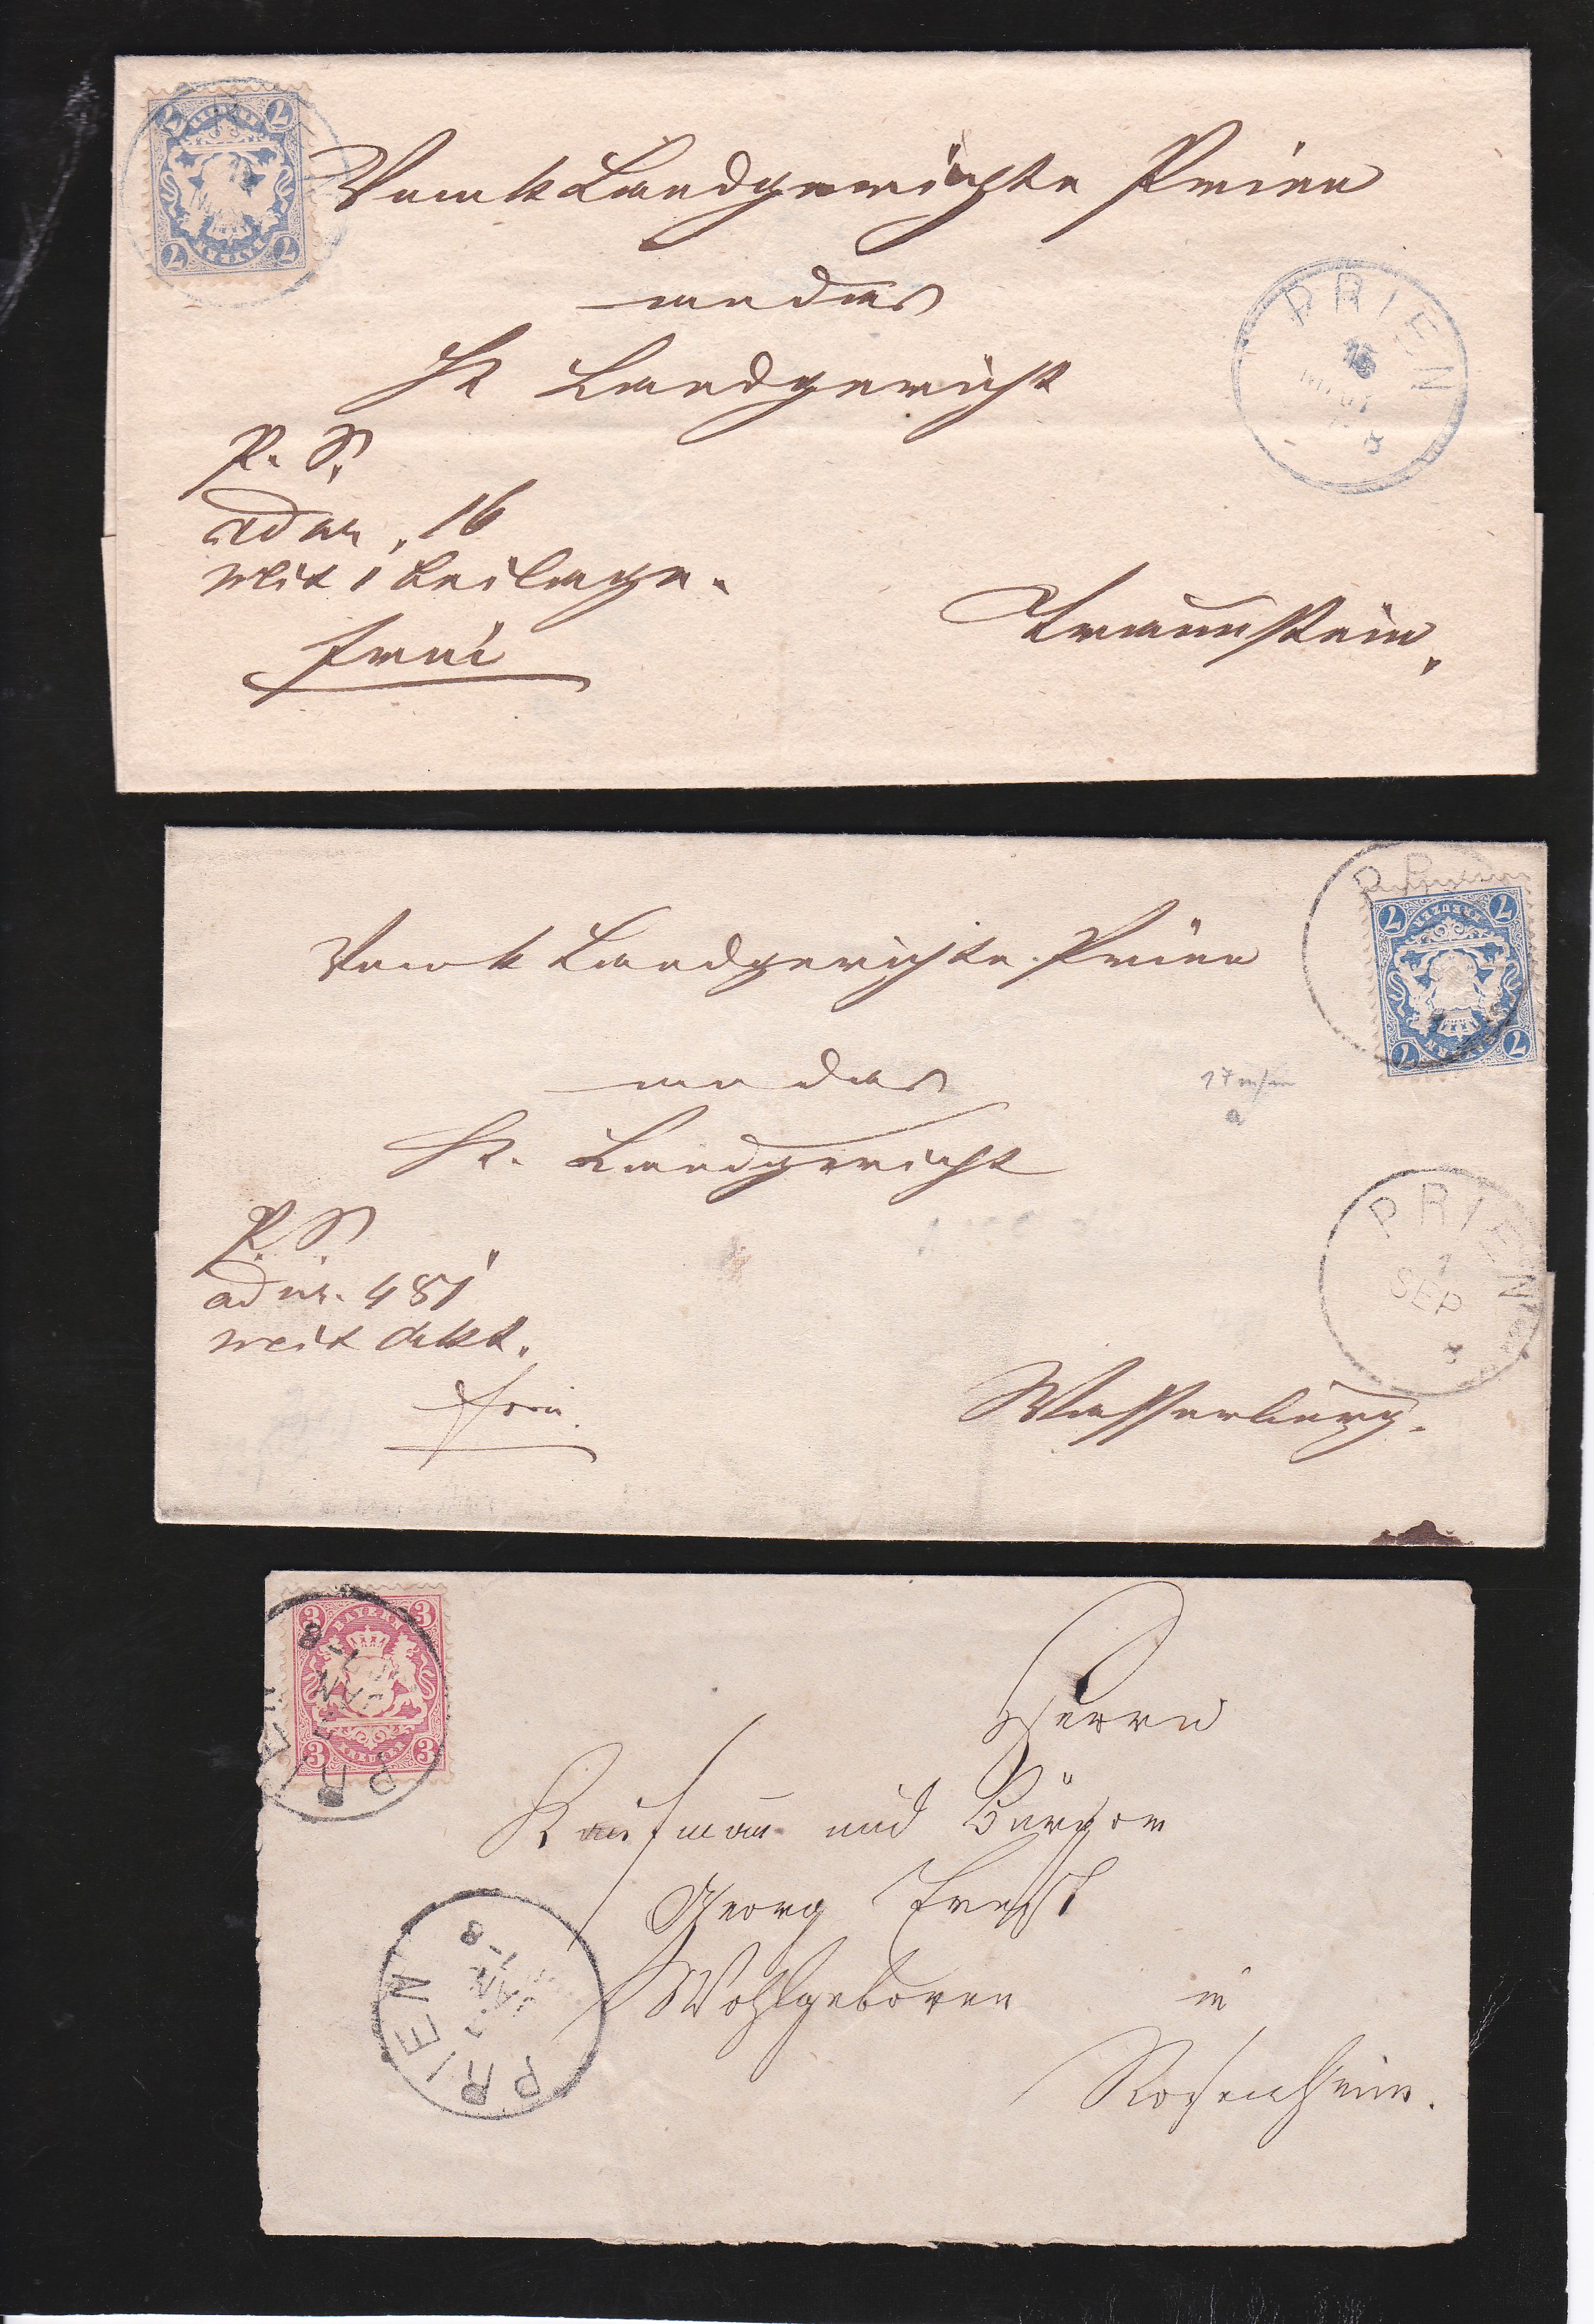 7 7
7 7
Vom k Landgerichte Prien
an das
K Landgericht
P. S.
ad nr. 16
mit 1 Beilage.
frei
Traunstein.
PRIEN
7 7
KREUZER
BAYERN
7 7
PR
Vom k Landgerichte Prien
an das
K. Landgericht
17 m/m
a
P. S.
ad nr. 481
mit Akt.
frei.
Wasserburg.
PRIEN
1
SEP
3 BAYERN 3
3 KREUZER 3
PRIEN
JAN
8
Herrn
Kaufmann und Bürger
Georg
Wohlgeboren in
Rosenheim.
PRIEN
JAN
8